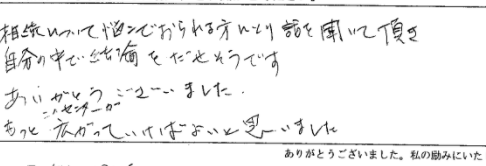 相続について悩んでおられる方にとり話を聞いて頂き
自分の中で結論をだせそうです
ありがとうございました.
このセンターが
もっと広がっていけばよいと思いました
ありがとうございました。私の励みにいた